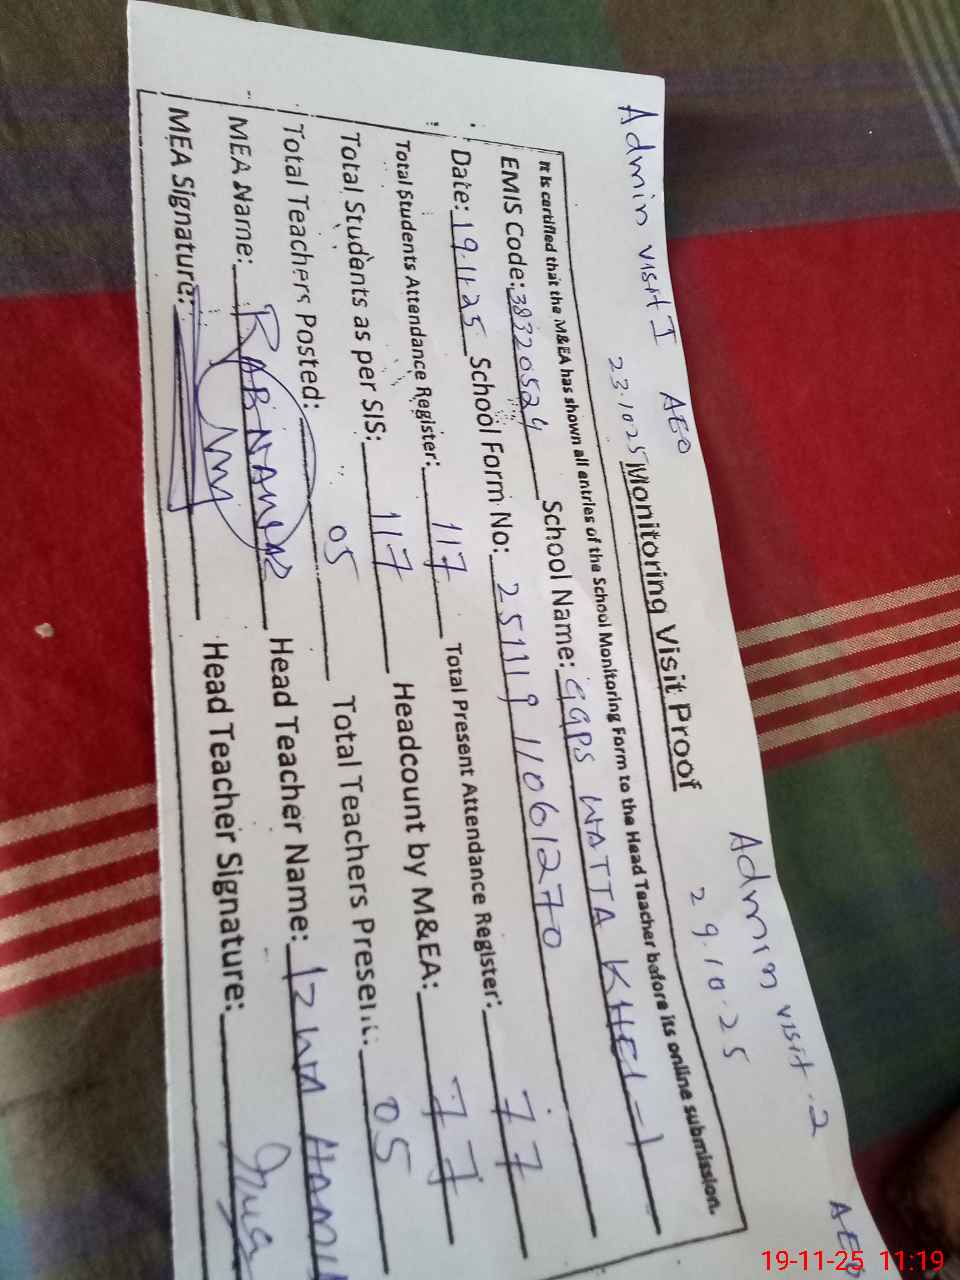 Admin visit I AEO Admin visit .2 AEO
23.10.25 Monitoring Visit Proof 29.10.25
It is certified that the M&EA has shown all entries of the School Monitoring Form to the Head Teacher before its online submission.
EMIS Code: 38320524 School Name: GGPS WATTA KHEL-1
Date: 19.11.25 School Form No: 251119 11061270
Total Students Attendance Register: 117 Total Present Attendance Register: 77
Total Students as per SIS: 117 Headcount by M&EA: 77
Total Teachers Posted: 05 Total Teachers Present: 05
MEA Name: RAB NAWAZ Head Teacher Name:
MEA Signature: Head Teacher Signature:
19-11-25 11:19